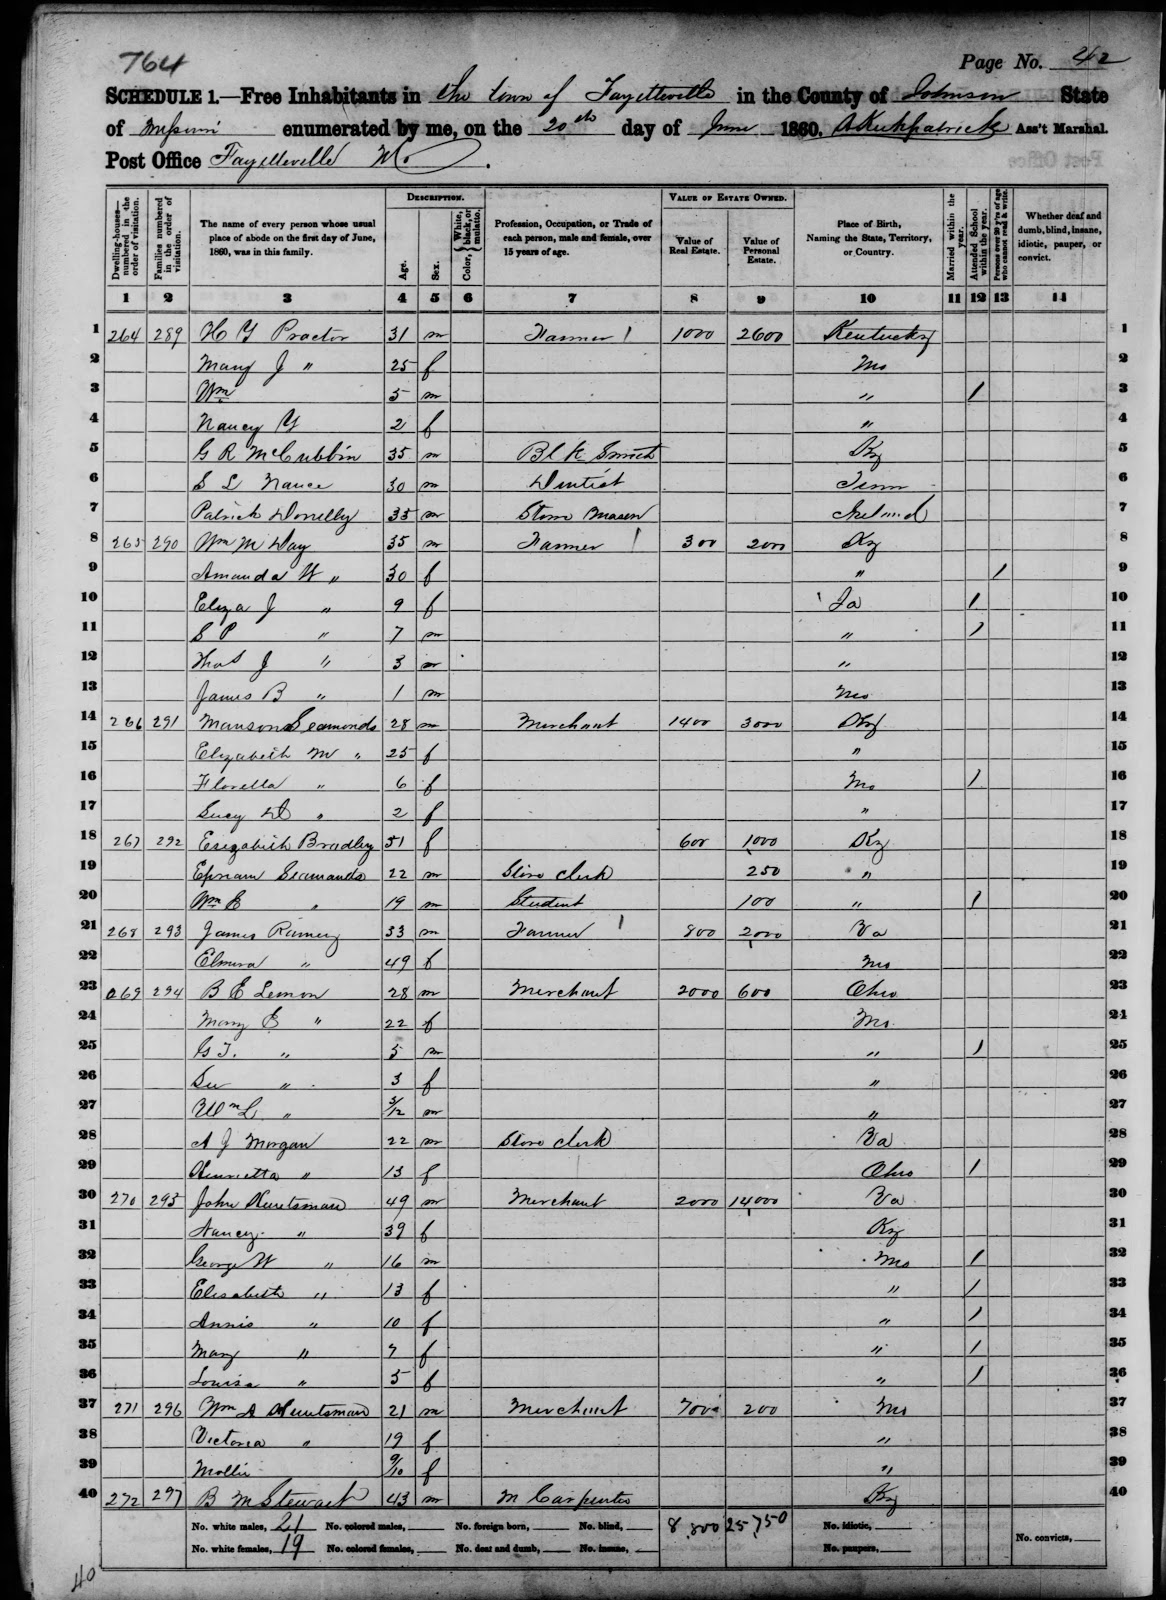 764
Page No. 42
SCHEDULE 1.—Free Inhabitants in the town of Fayetteville in the County of Johnson State
of Missouri enumerated by me, on the 20th day of June 1860. A Kirkpatrick Ass't Marshal.
Post Office Fayetteville Mo.
Dwelling-houses—numbered in the order of visitation. Families numbered in the order of visitation. The name of every person whose usual place of abode on the first day of June, 1860, was in this family. DESCRIPTION. Age. Sex. Color, White, black, or mulatto. Profession, Occupation, or Trade of each person, male and female, over 15 years of age. VALUE OF ESTATE OWNED. Value of Real Estate. Value of Personal Estate. Place of Birth, Naming the State, Territory, or Country. Married within the year. Attended School within the year. Persons over 20 y'rs of age who cannot read & write. Whether deaf and dumb, blind, insane, idiotic, pauper, or convict.
1 2 3 4 5 6 7 8 9 10 11 12 13 14
1 264 289 H Y Proctor 31 m Farmer 1 1000 2600 Kentucky 1
2 Mary J " 25 f Mo 2
3 Wm 5 m " / 3
4 Nancy Y 2 f " 4
5 G R McCubbin 35 m Blk Smith Ky 5
6 S L Nance 30 m Dentist Tenn 6
7 Patrick Donelly 35 m Stone Mason Ireland 7
8 265 290 Wm M Day 35 m Farmer 1 300 2000 Ky 8
9 Amanda W " 30 f " / 9
10 Eliza J " 9 f Ia / 10
11 S P " 7 m " / 11
12 Thos J " 3 m " 12
13 James B " 1 m Mo 13
14 266 291 Manson Seamonds 28 m Merchant 1400 3000 Ky 14
15 Elizabeth M " 25 f " 15
16 Florella " 6 f Mo / 16
17 Lucy D " 2 f " 17
18 267 292 Elizabeth Bradley 51 f 600 1000 Ky 18
19 Ephriam Seamonds 22 m Store Clerk 250 " 19
20 Wm E " 19 m Student 100 " / 20
21 268 293 James Ramey 53 m Farmer 1 800 2000 Va 21
22 Elmira " 49 f Mo 22
23 269 294 B E Lemon 28 m Merchant 2000 600 Ohio 23
24 Mary E " 22 f Mo 24
25 G T. " 5 m " / 25
26 Su " 3 f " 26
27 Wm L " 3/12 m " 27
28 A J Morgan 22 m Store Clerk Va 28
29 Henrietta " 13 f Ohio / 29
30 270 295 John Huntsman 49 m Merchant 2000 14000 Va 30
31 Nancy " 39 f Ky 31
32 George W " 16 m Mo / 32
33 Elisabeth " 13 f " / 33
34 Annis " 10 f " / 34
35 Mary " 7 f " / 35
36 Louisa " 5 f " / 36
37 271 296 Wm A Huntsman 21 m Merchant 700 200 Mo 37
38 Victoria " 19 f " 38
39 Mollie 9/10 f " 39
40 272 297 B M Stewart 43 m M Carpenter Ky 40
No. white males, 21 No. colored males, No. foreign born, No. blind, 8,800 25,750 No. idiotic,
No. white females, 19 No. colored females, No. deaf and dumb, No. insane, No. paupers, No. convicts,
40